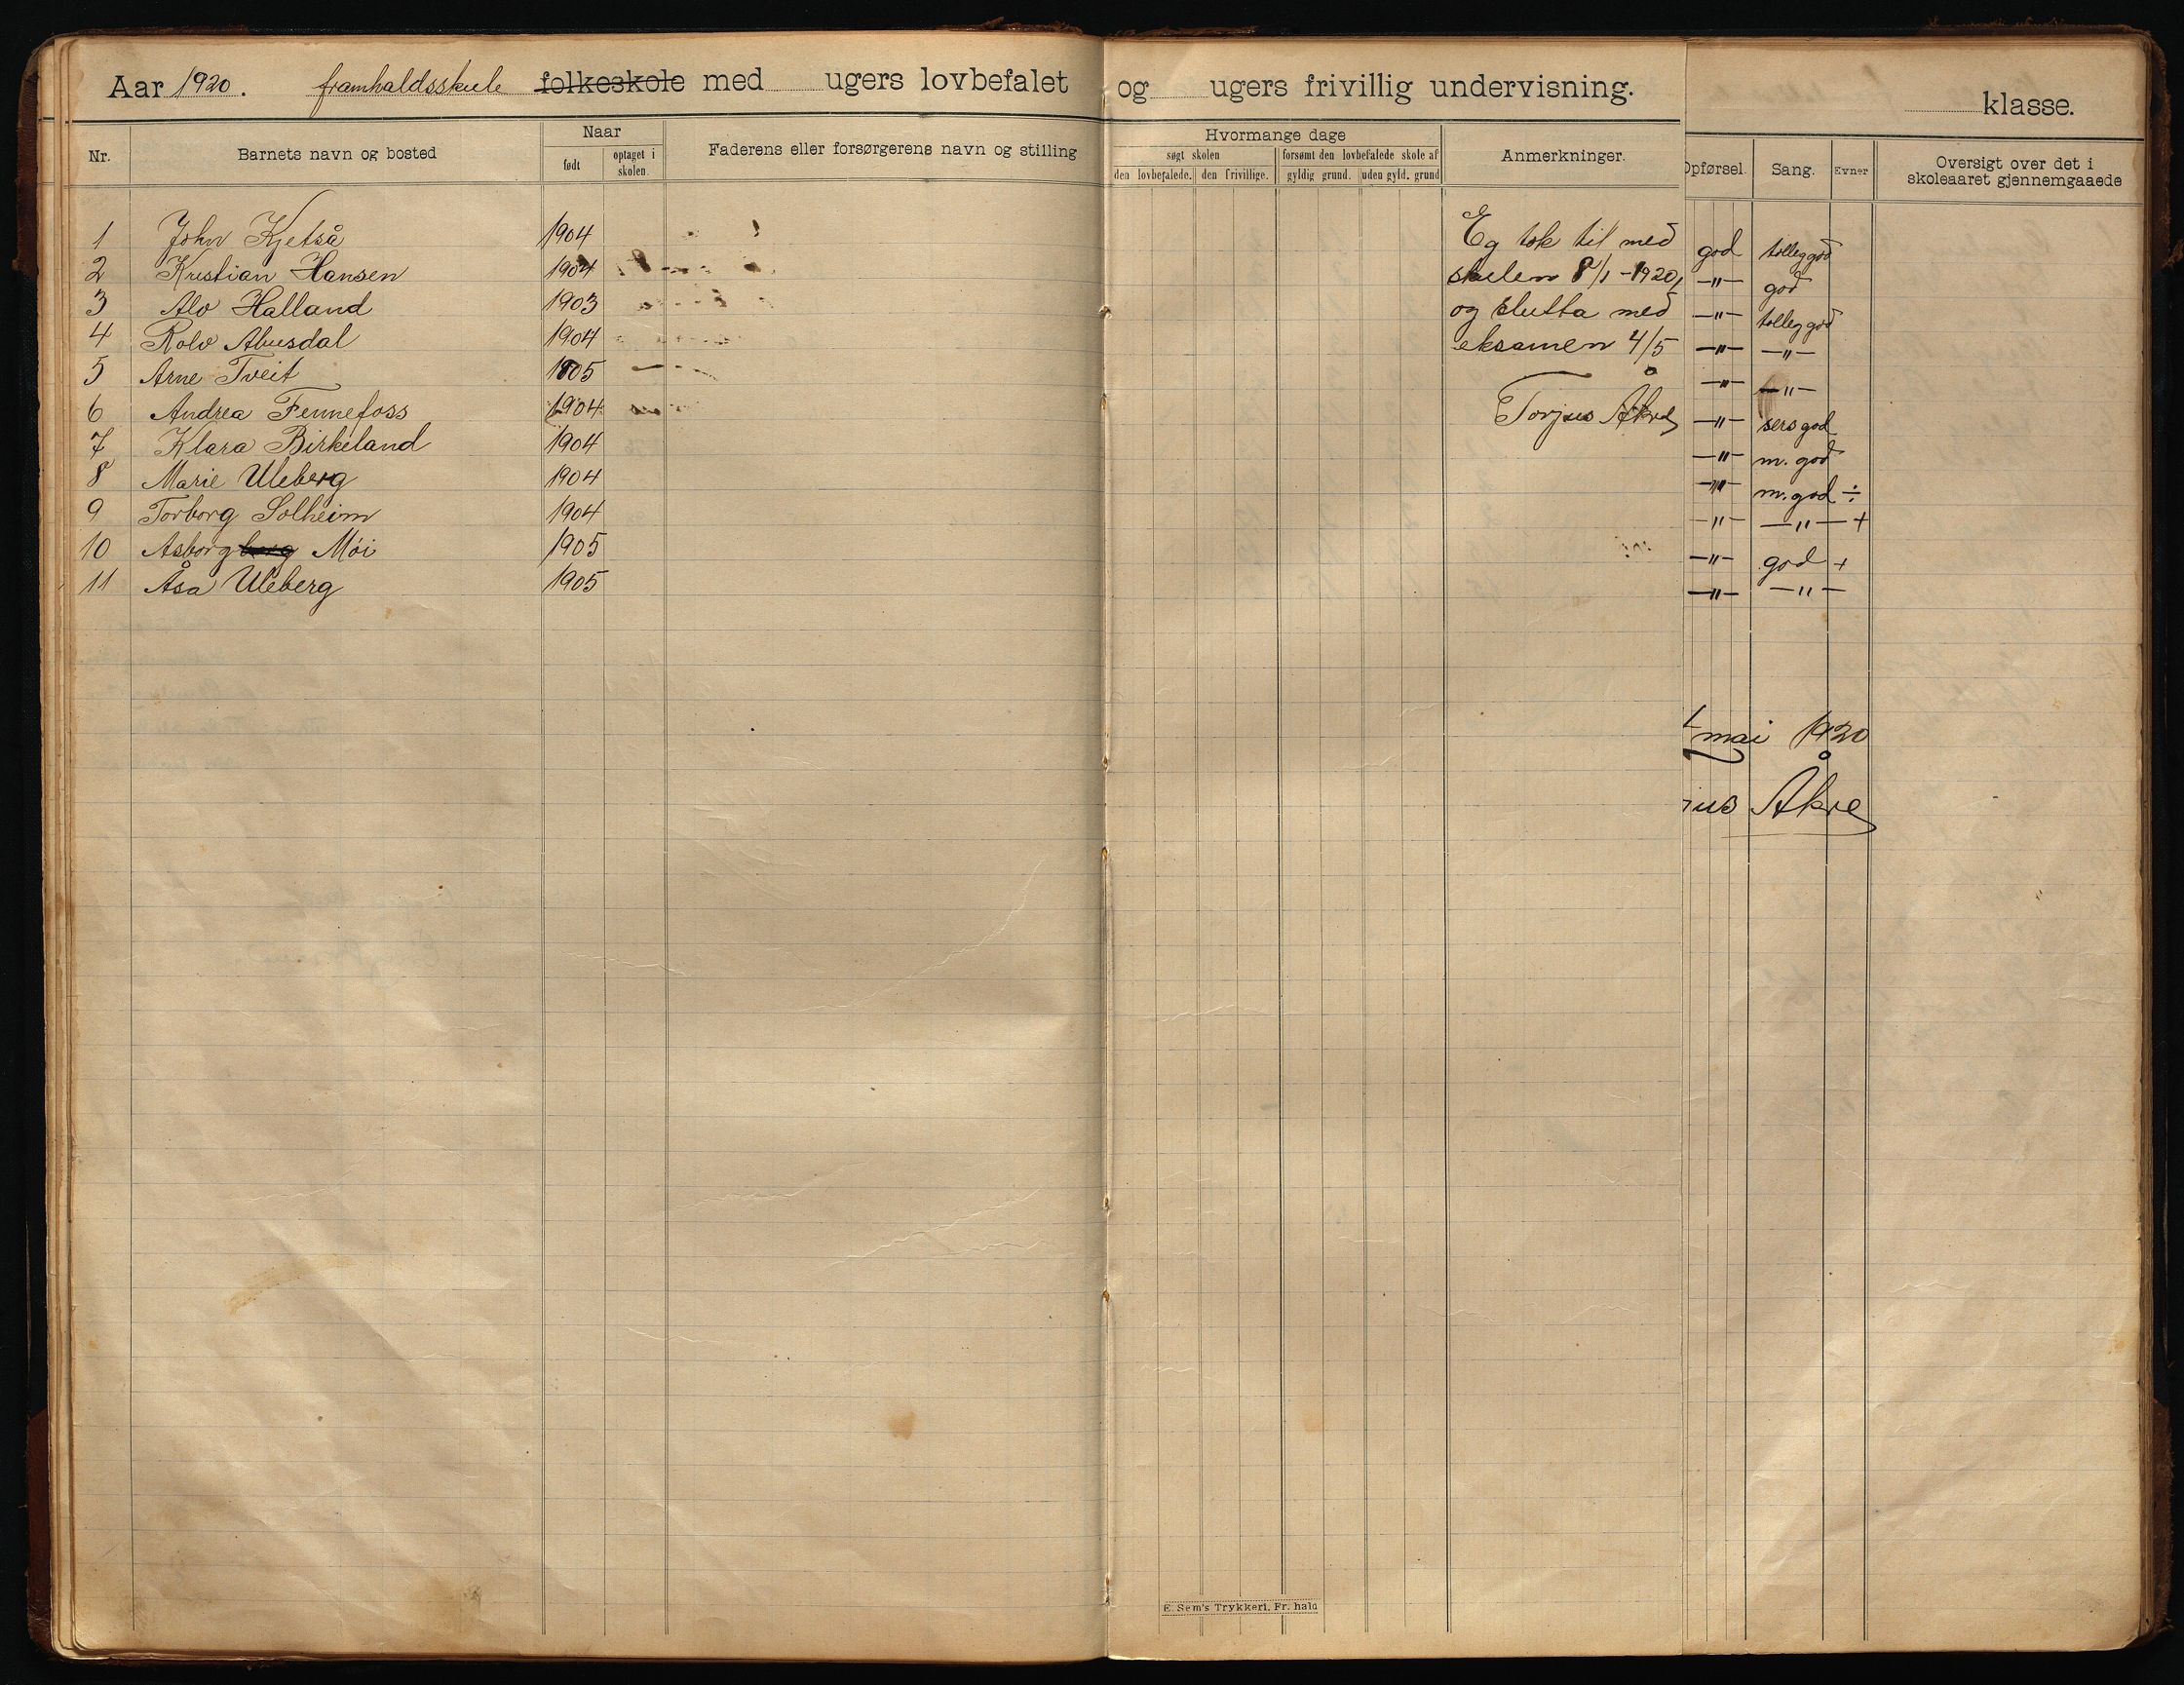 Aar 1920. framhaldsskule folkeskole med ugers lovbefalet og ugers frivillig undervisning.
klasse.
Nr. Barnets navn og bosted Naar født optaget i skolen. Faderens eller forsørgerens navn og stilling
Hvormange dage
søgt skolen forsømt den lovbefalede skole af
den lovbefalede. den frivillige. gyldig grund. uden gyld. grund
Anmerkninger.
Opførsel. Sang. Evner Oversigt over det i
skoleaaret gjennemgaaede
1 John Kjetså 1904
2 Kristian Hansen 1904
3 Alv Halland 1903
4 Rolv Abusdal 1904
5 Arne Tveit 1905
6 Andrea Fennefoss 1904
7 Klara Birkeland 1904
8 Marie Uleberg 1904
9 Torborg Solheim 1904
10 Asborg berg Mói 1905
11 Åsa Uleberg 1905
Eg tok til med
skulen 8/1 - 1920,
og slutta med
eksamen 4/5
Torjus Åkre
god tolleg god
—"— god
—"— tolleg god
—"— —"—
—"— —"—
—"— sers god
—"— m. god
—"— m. god ÷
—"— —"— +
—"— god +
—"— —"—
mai 1920
jus Åkre
E. Sem's Trykkeri, Fr. hald